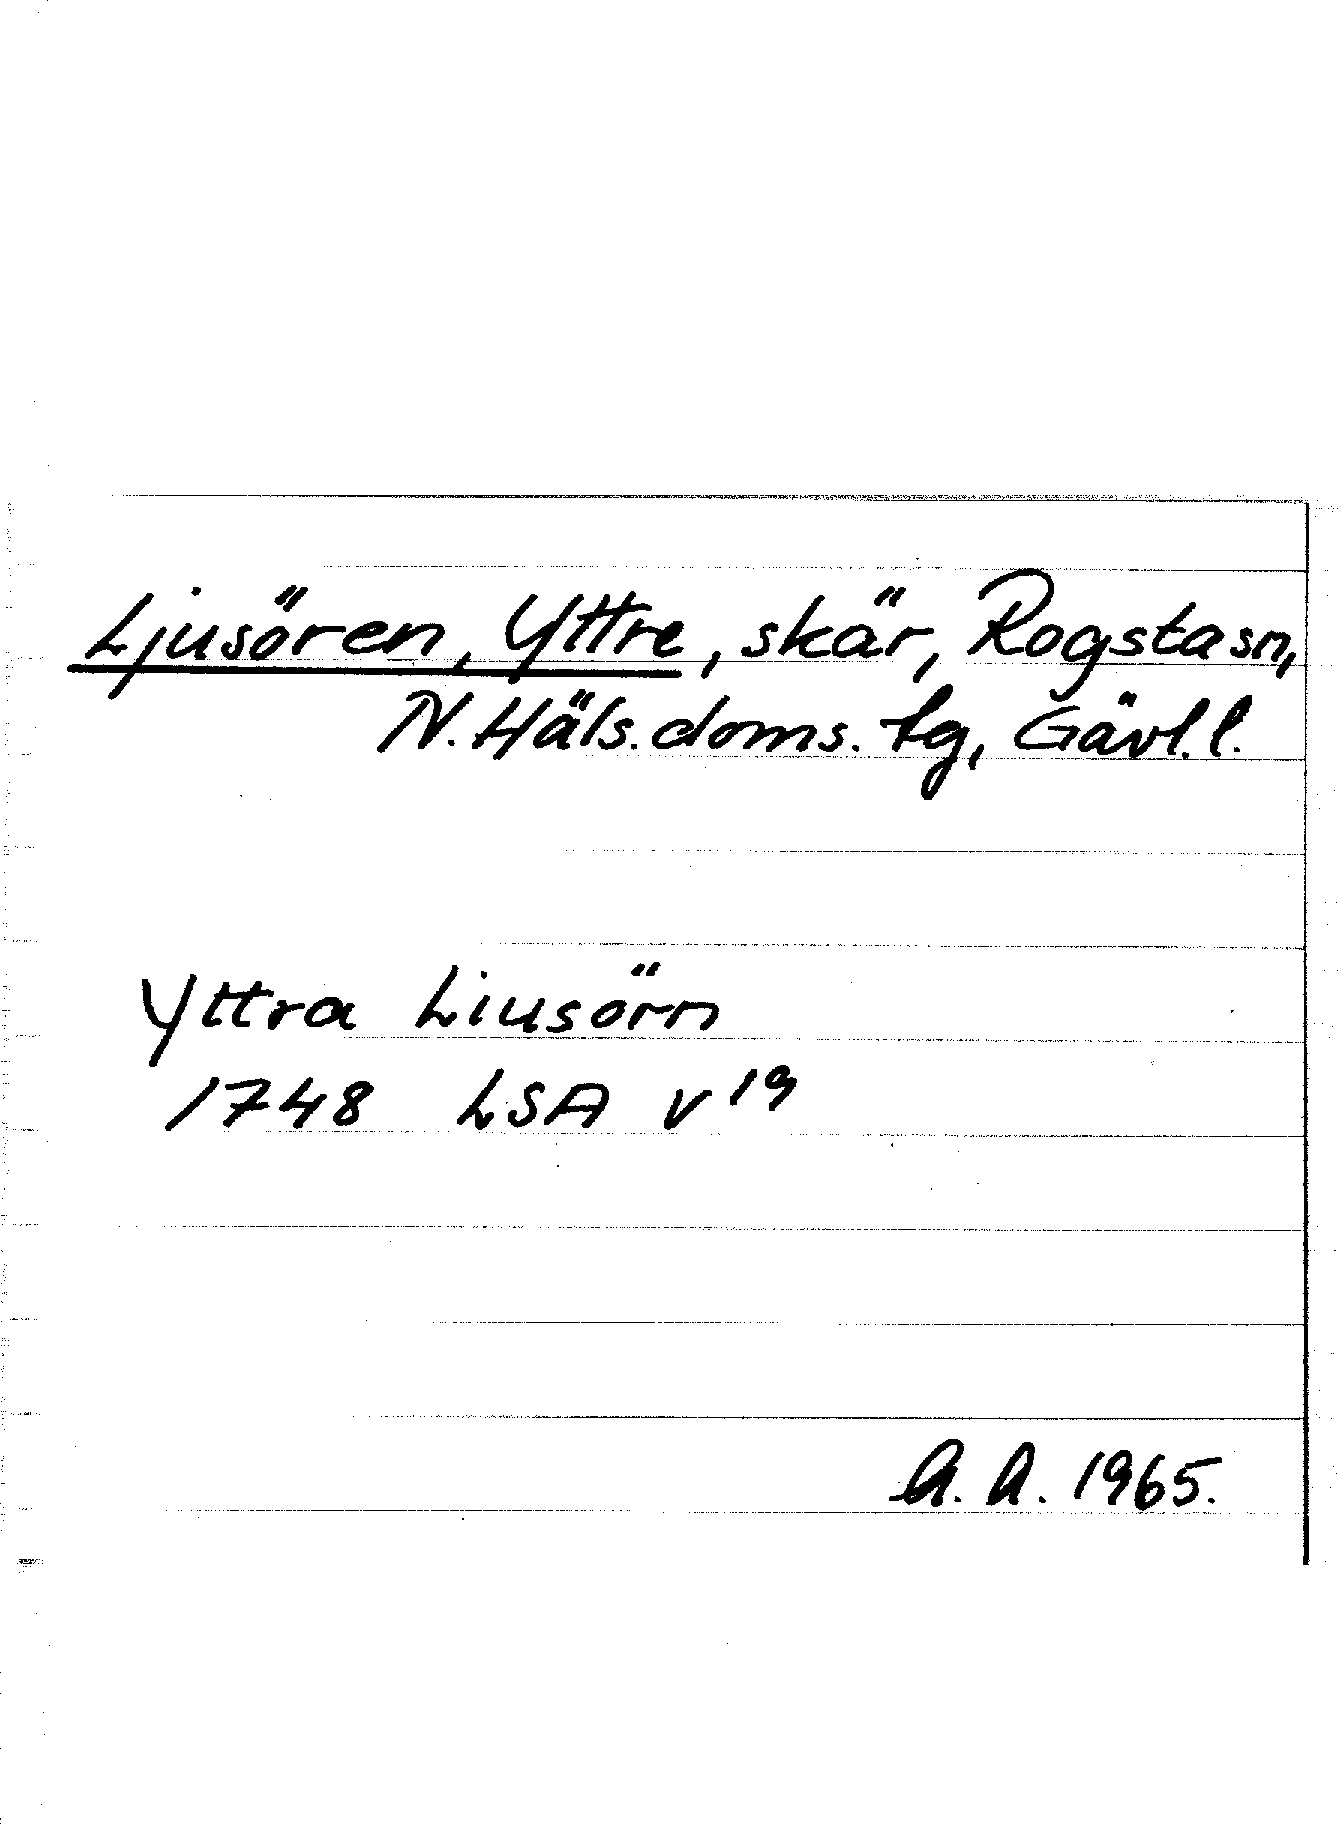 Ljusören, Yttre, skär, Rogsta sn,
N. Häls. doms. tg, Gävl. l.
Yttra Liusörn
1748 LSA v 19
A. A. 1965.